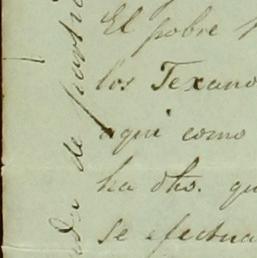 El pobre
los Texano
aqui como
ha dho. qu
se efectua
de